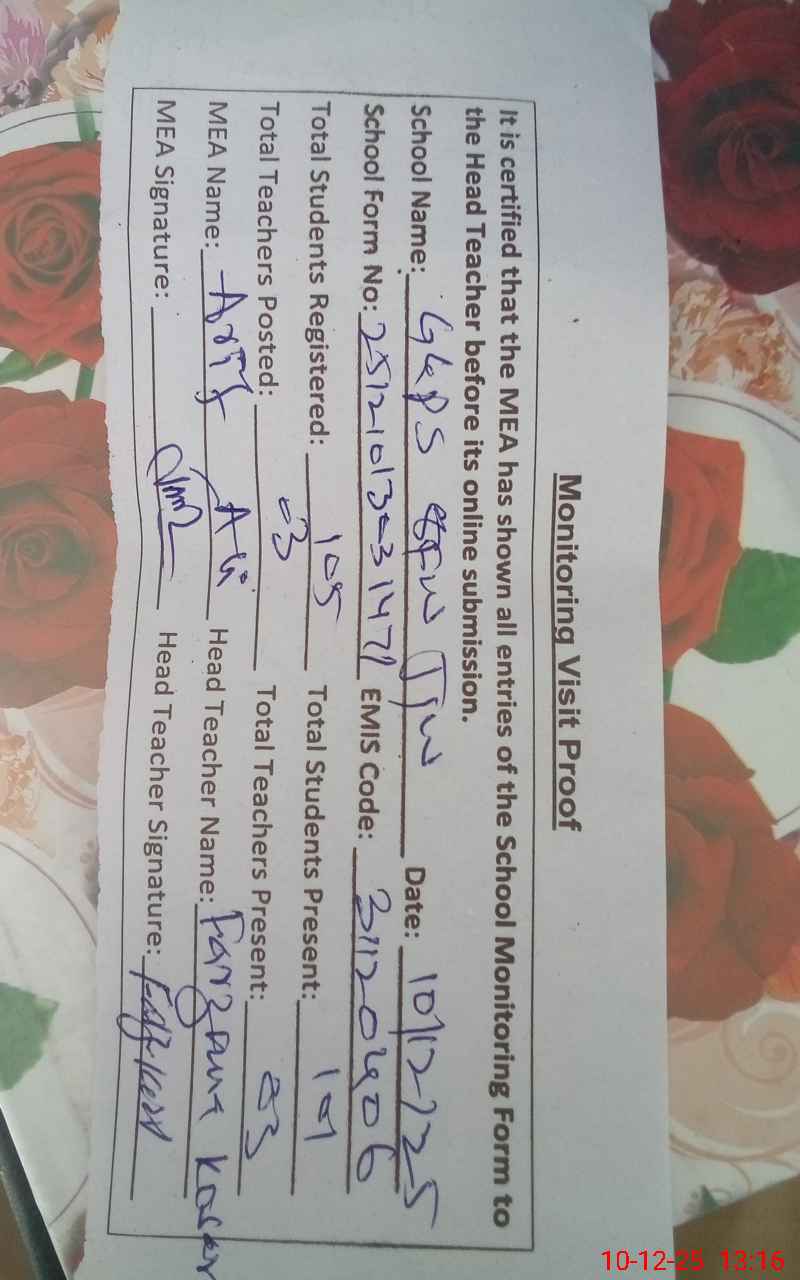 Monitoring Visit Proof
It is certified that the MEA has shown all entries of the School Monitoring Form to
the Head Teacher before its online submission.
School Name: GGPS Date: 10/12/25
School Form No: EMIS Code: 31120406
Total Students Registered: 105 Total Students Present: 101
Total Teachers Posted: 03 Total Teachers Present: 03
MEA Name: Arif Ali Head Teacher Name: Farzana Kosar
MEA Signature: Head Teacher Signature:
10-12-25 13:16